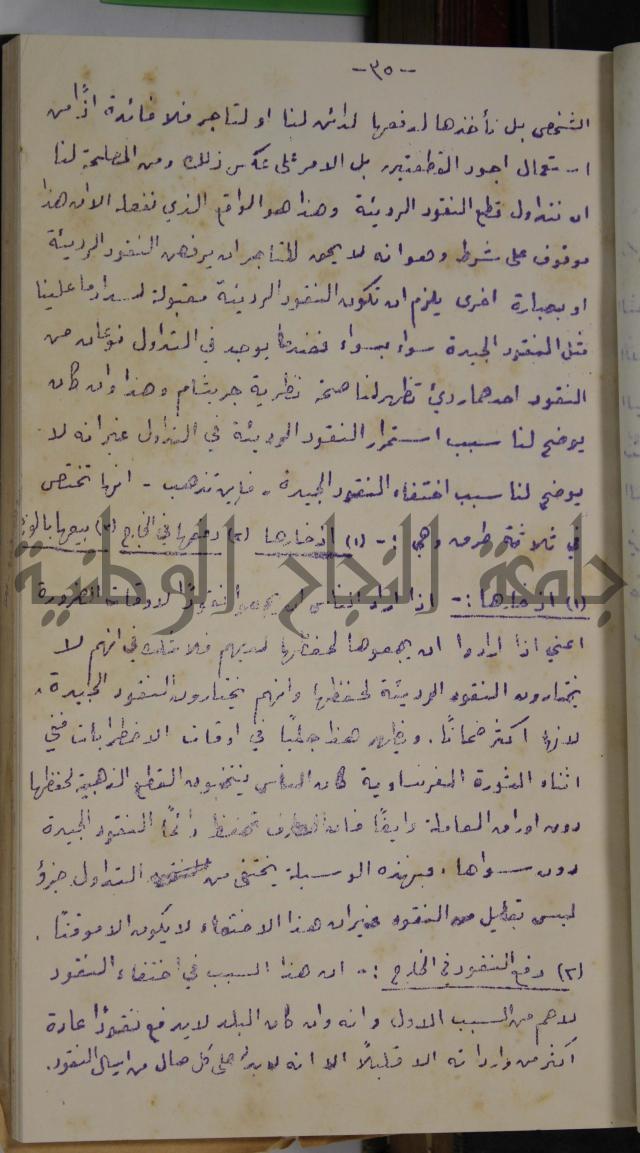 -٣٥-
الشخص بل نأخذها لدفعها لدائن لنا او لتاجر فلا فائدة اذًا من
استعمال اجود القطعتين بل الامر على عكس ذلك ومن المصلحة لنا
ان نتداول قطع النقود الرديئة وهذا هو الواقع الذي نفعله الا ان هذا
موقوف على شرط وهو انه لا يحق للتاجر ان يرفض النقود الرديئة
او بعبارة اخرى يلزم ان تكون النقود الرديئة مقبولة لسداد ما علينا
مثل النقود الجيدة سواء بسواء فعندما يوجد في التداول نوعان من
النقود احدهما ردئ تظهر لنا صحة نظرية جريشام وهذا وان كان
يوضح لنا سبب استمرار النقود الرديئة في التداول غير انه لا
يوضح لنا سبب اختفاء النقود الجيدة، فاين تذهب - انها تختفي
في ثلاثة طرق وهي :- (١) ادخارها (٢) دفعها في الخارج (٣) بيعها بالوزن
جامعة النجاح الوطنية
(١) ادخارها :- اذا اراد الناس ان يجمعوا نقودًا لاوقات الضرورة
اعني اذا ارادوا ان يجمعوها لحفظها لديهم فلا شك في انهم لا
يختارون النقود الرديئة لحفظها وانهم يختارون النقود الجيدة،
لانها اكثر ضمانًا. ويظهر هذا جليًا في اوقات الاضطرابات ففي
اثناء الثورة الفرنساوية كان الناس ينتخبون القطع الذهبية لحفظها
دون اوراق المعاملة وايضًا فان المصارف تحفظ دائمًا النقود الجيدة
دون سواها. فبهذه الوسيلة يختفي من التداول جزؤ
ليس بقليل من النقود غير ان هذا الاختفاء لا يكون الا موقتًا.
(٢) دفع النقود في الخارج :- ان هذا السبب في اختفاء النقود
لاهم من السبب الاول وانه وان كان البلد لا يدفع نقودًا عادة
اكثر من وارداته الا قليلًا الا انه لا بد على كل حال من ارسال النقود.